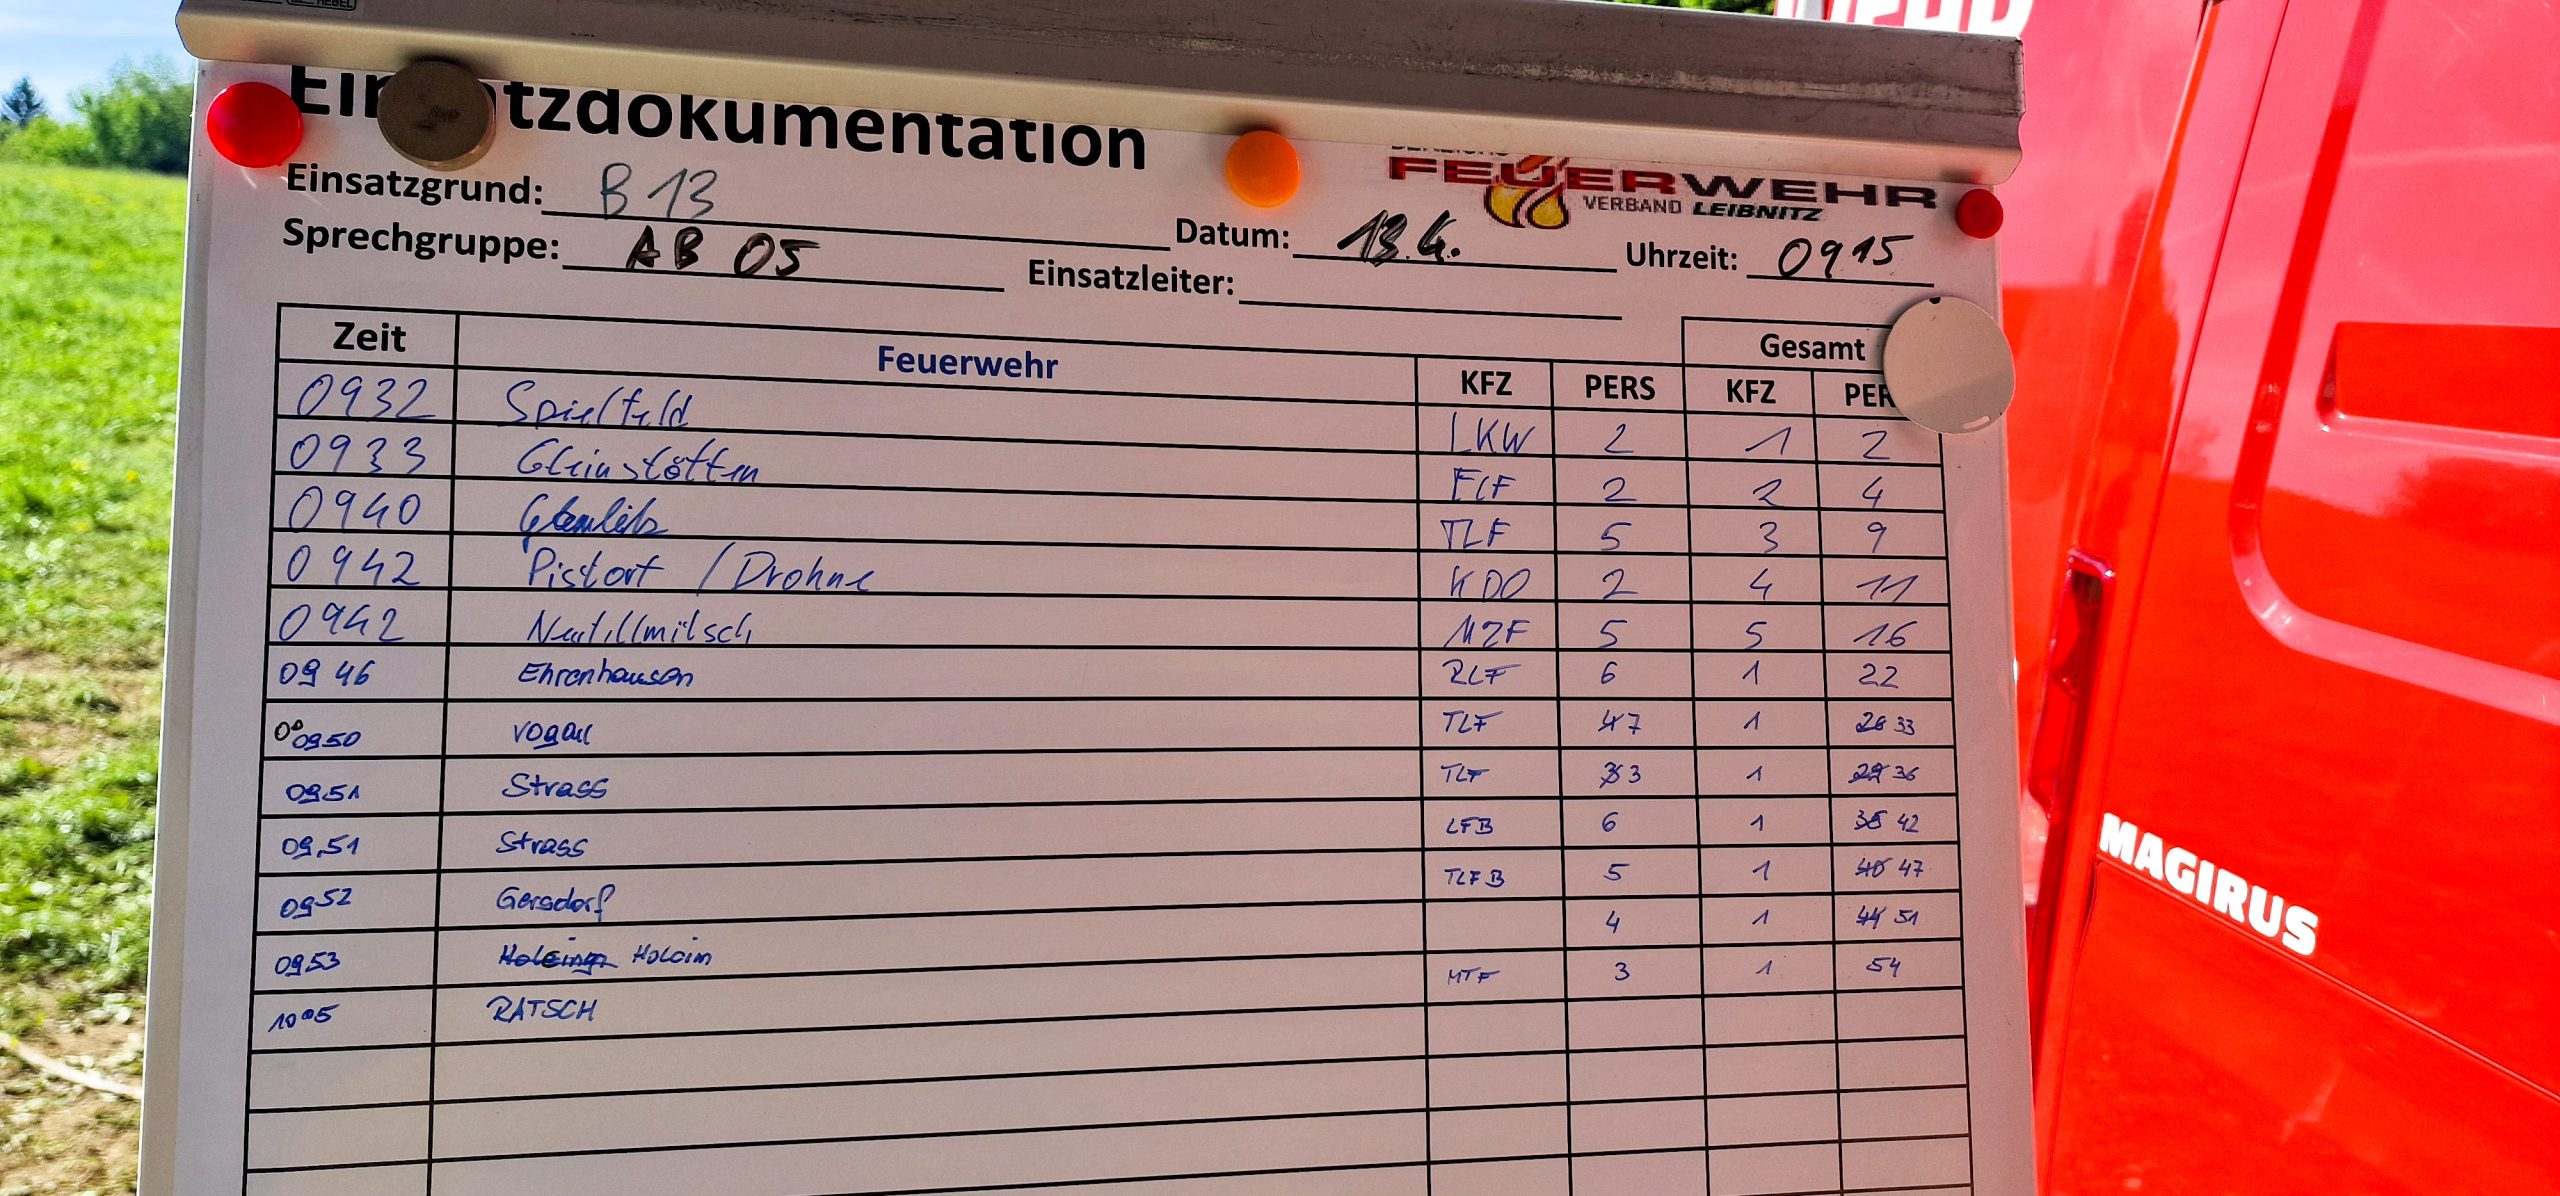 WEHR
Einsatzdokumentation
FEUERWEHR
VERBAND LEIBNITZ
Einsatzgrund: B 13
Sprechgruppe: AB 05 Datum: 13.4. Uhrzeit: 09 15
Einsatzleiter:
Zeit Feuerwehr KFZ PERS Gesamt KFZ PER
0932 Spielfeld LKW 2 1 2
0933 Gleinstätten ELF 2 2 4
0940 TLF 5 3 9
0942 Pistorf / Drohne KDO 2 4 11
0942 Neutillmitsch MZF 5 5 16
09 46 Ehrenhausen RLF 6 1 22
0950 Vogau TLF 4 7 1 26 33
0951 Strass TLF 3 3 1 29 36
09.51 Strass LFB 6 1 35 42
0952 Gersdorf TLFB 5 1 40 47
0953 Holcim 4 1 44 51
1005 RATSCH MTF 3 1 54
MAGIRUS